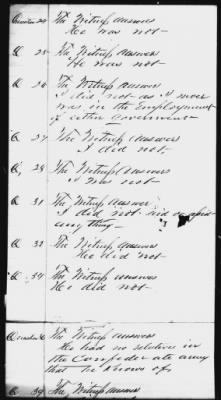 Question 24 The Witness answers
He was not -
Q 25 The Witness Answers
He was not
Q 26 The Witness Answers
I did not as I never
was in the Employment
of either Government
Q 27 The Witness Answers
I did not,
Q, 28 The Witness Answers
I was not
Q 31 The Witness Answers
I did not
any thing -
Q 32 The Witness answers
He did not
Q 34 The Witness answers
He did not
Question The Witness answers
He had no relative in
the Confederate army
that he knows of,
Q 39 The Witness answers